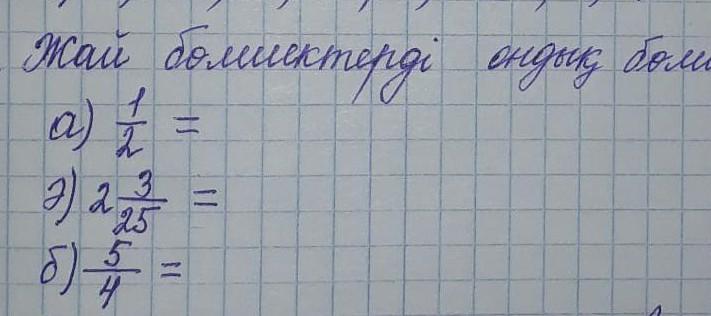 Жай бөлшектерді ондық бөлш
а) 1/2 =
ә) 2 3/25 =
б) 5/4 =